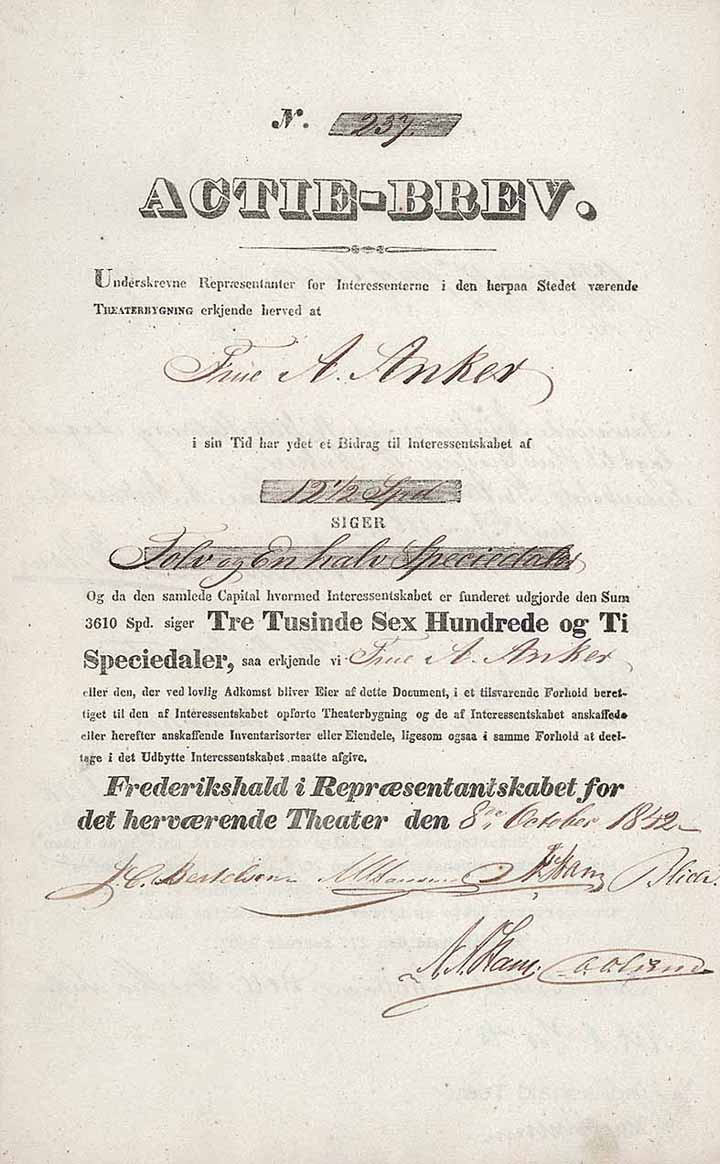 N. 237.
ACTIE-BREV.
Underskrevne Repræsentanter for Interessenterne i den herpaa Stedet værende
THEATERBYGNING erkjende herved at
Frue A. Anker
i sin Tid har ydet et Bidrag til Interessentskabet af
12 1/2 Spd
SIGER
Tolv og En halv Speciedaler
Og da den samlede Capital hvormed Interessentskabet er funderet udgjorde den Sum
3610 Spd. siger Tre Tusinde Sex Hundrede og Ti
Speciedaler, saa erkjende vi Frue A. Anker
eller den, der ved lovlig Adkomst bliver Eier af dette Document, i et tilsvarende Forhold beret-
tiget til den af Interessentskabet opførte Theaterbygning og de af Interessentskabet anskaffede
eller herefter anskaffende Inventarisorter eller Eiendele, ligesom ogsaa i samme Forhold at deel-
tage i det Udbytte Interessentskabet maatte afgive.
Frederikshald i Repræsentantskabet for
det herværende Theater den 8de October 1842
J. C. Bertelsen